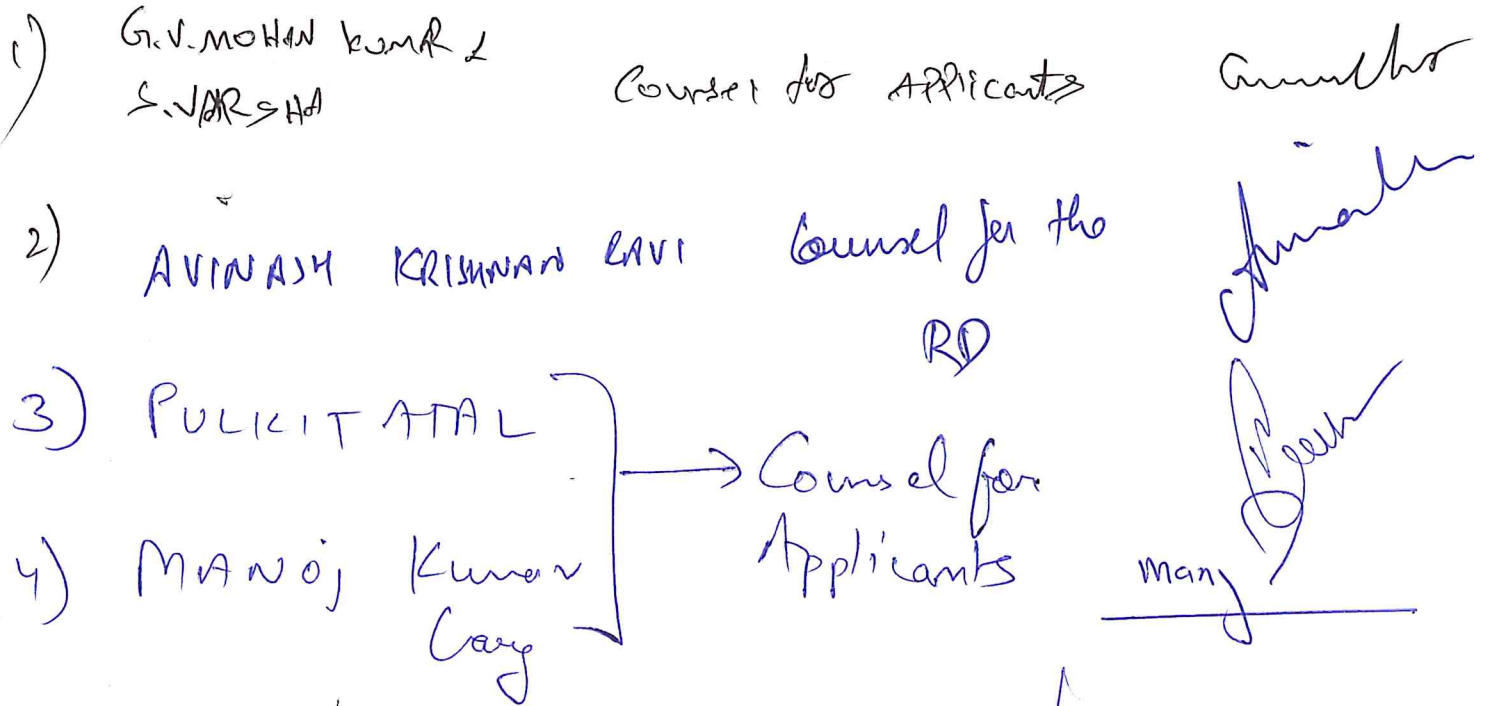 1) G.V. MOHAN KUMAR &
S. VARSHA Counsel for Applicants
2) AVINASH KRISHNAN RAVI Counsel for the
RD
3) PULKIT ATAL
Counsel for
4) MANOJ Kumar Applicants
Garg